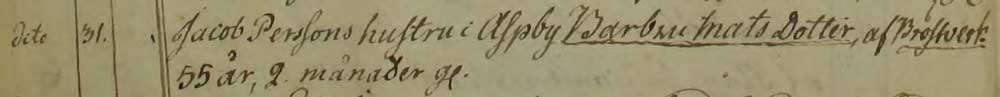 dito 31. Jacob Perssons hustru i Aspby Barbru Mats Dotter, af Bröstwerk
55 år, 2 månader gl.